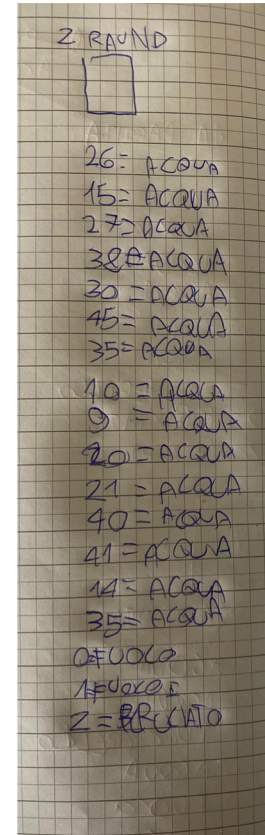 2 RAUND
26= ACQUA
15= ACQUA
27= ACQUA
38= ACQUA
30 = ACQUA
45= ACQUA
35= ACQUA
10 = ACQUA
9 = ACQUA
20 = ACQUA
21 = ACQUA
40 = ACQUA
41 = ACQUA
14= ACQUA
35= ACQUA
0=UOCO
1=UOCO
2 = BRUCIATO